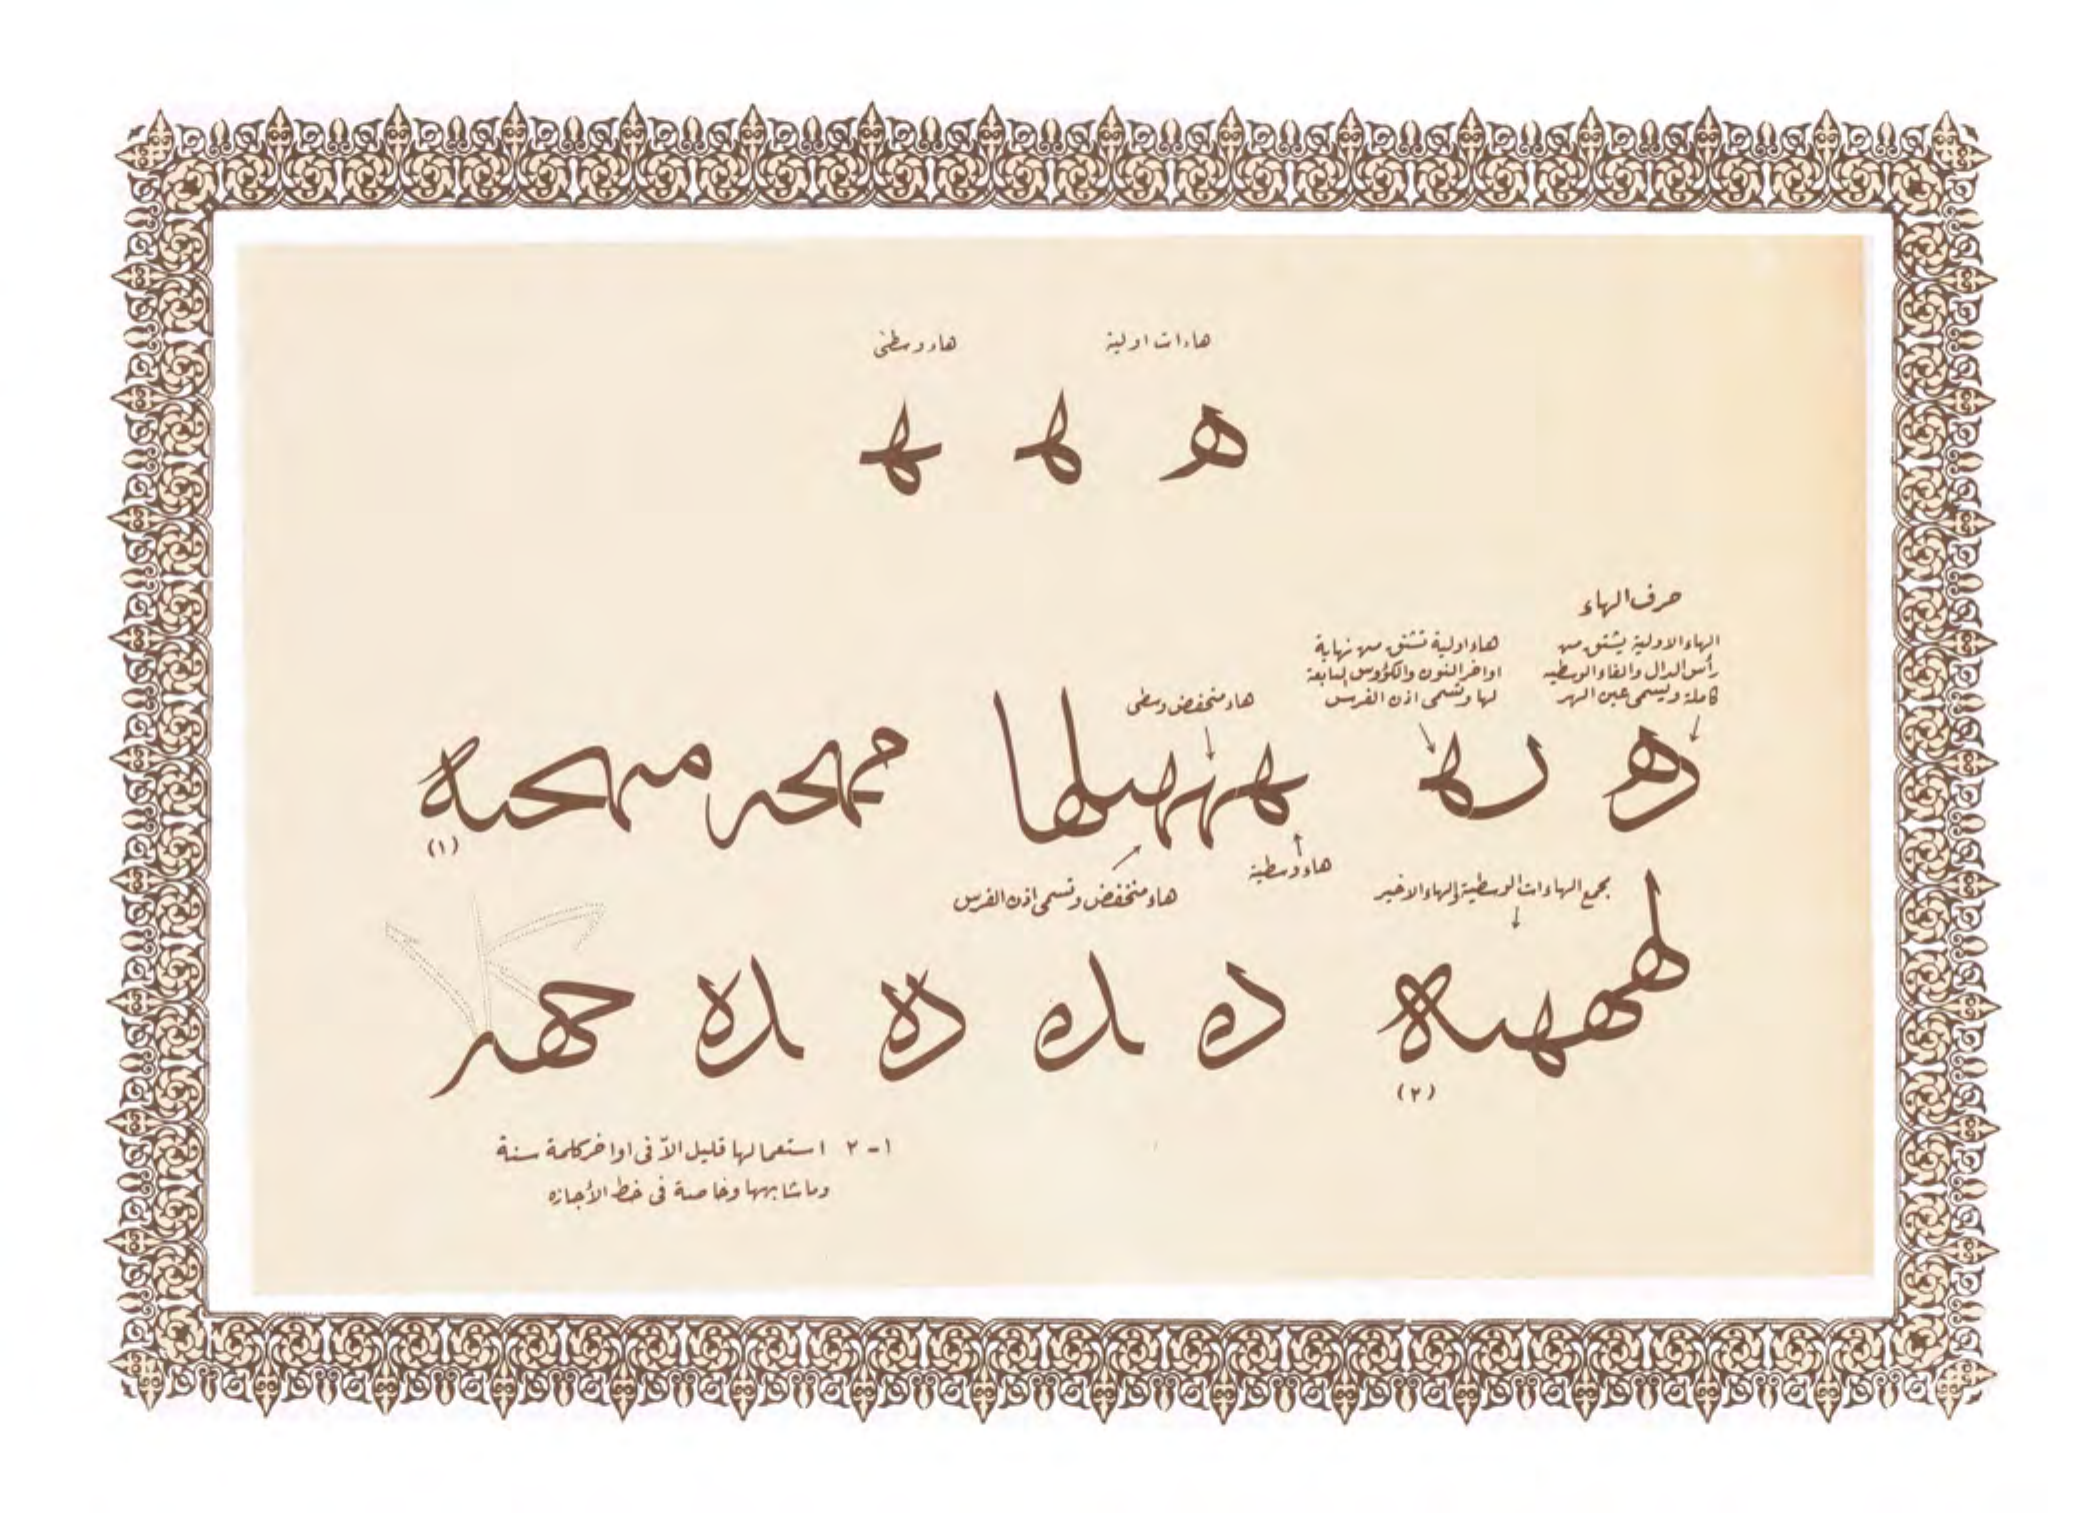 هاءات اولية
هاء وسطى
ه هـ ـهـ
حرف الهاء
الهاء الاولية يشتق من
رأس الدال والفاء الوسطيه
كاملة ويسمى عين الهر
هاء اولية تشتق من نهاية
اواخر النون والكؤوس
لها وتسمى اذن الفرس
هاء منخفض وسطى
هاء وسطية
هاء منخفض وتسمى اذن الفرس
(١)
يجمع الهاءات الوسطية والهاء الاخير
(٢)
١ - ٢ استعمالها قليل الاّ فى اواخر كلمة سنة
وماشابهها وخاصة فى خط الأجازه